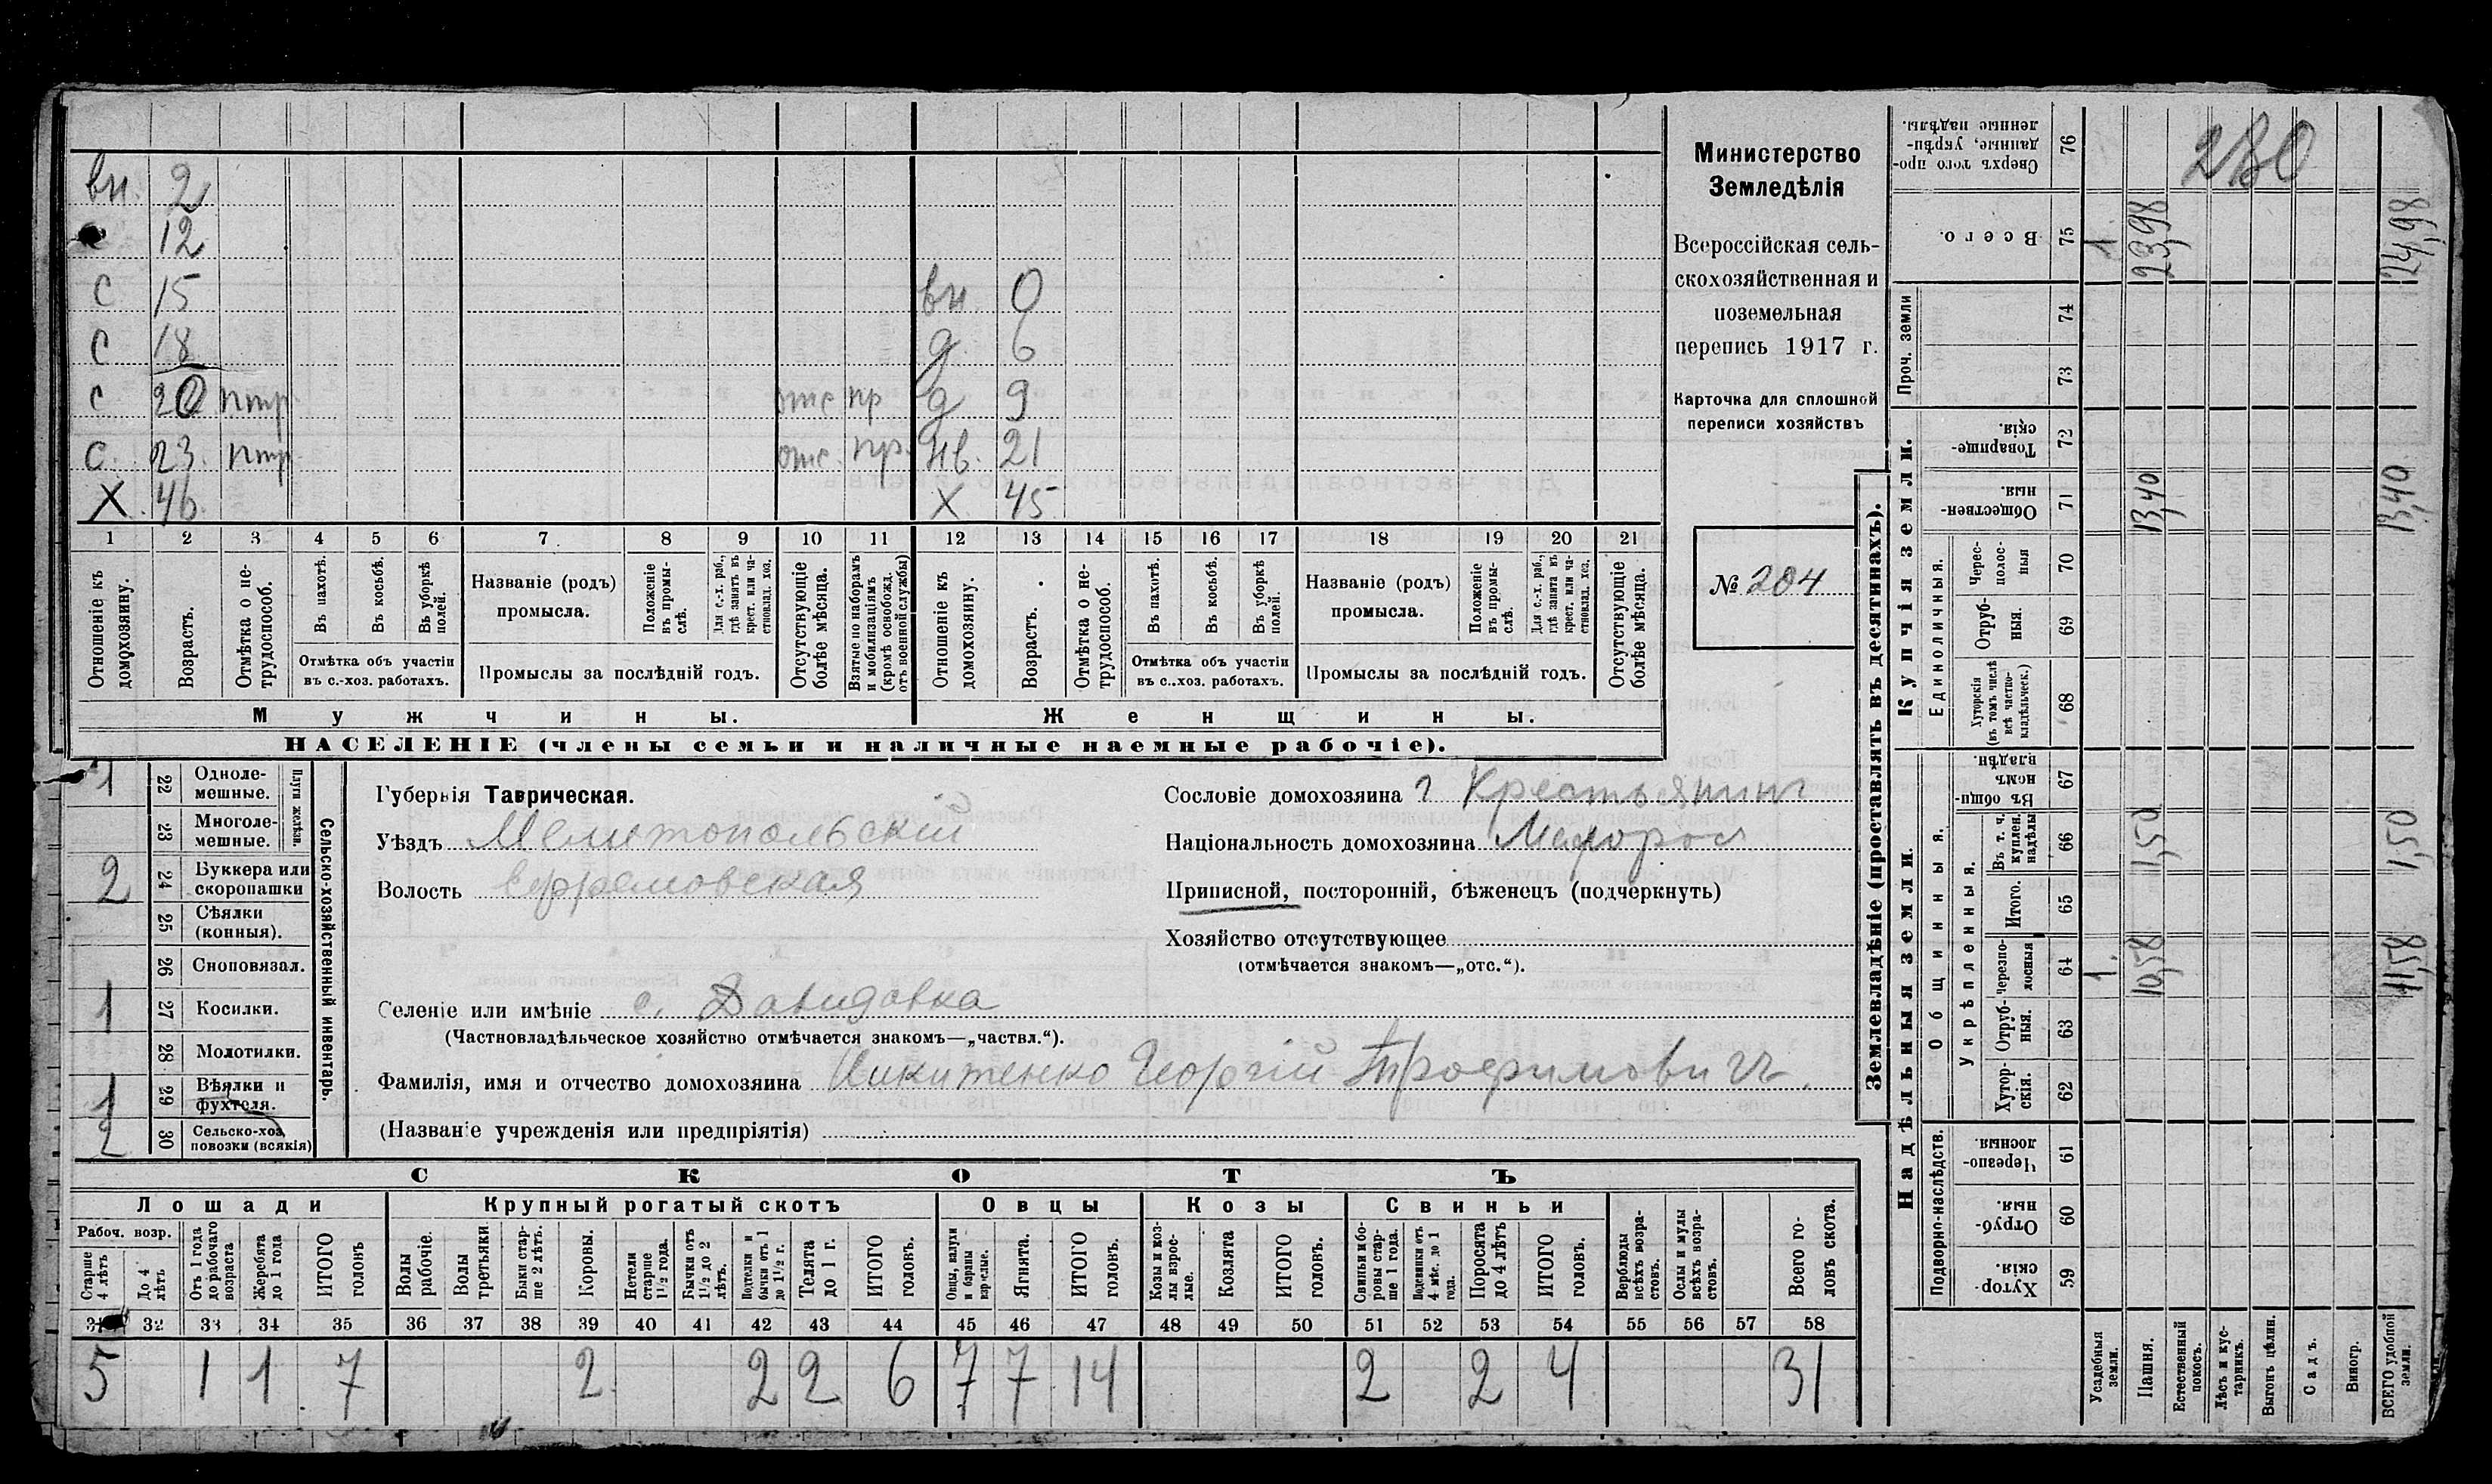 вн. 2
с 12
с 15 вн. 0
с 18 д. 6
с 20 нтр. отс пр д 9
с. 23. нтр. отс. пр. нв. 21
Х 46. Х 45
1 2 3 4 5 6 7 8 9 10 11 12 13 14 15 16 17 18 19 20 21
Отношеніе къ домохозяину.
Возрастъ.
Отмѣтка о нетрудоспособ.
Въ пахотѣ.
Въ косьбѣ.
Въ уборкѣ полей.
Отмѣтка объ участіи въ с.-хоз. работахъ.
Названіе (родъ) промысла.
Положеніе въ промыслѣ.
Для с.-х. раб., гдѣ занятъ въ крест. или частновлад. хоз.
Промыслы за послѣдній годъ.
Отсутствующіе болѣе мѣсяца.
Взятые по наборамъ и мобилизаціямъ (кромѣ освобожд. отъ военной службы)
Отношеніе къ домохозяину.
Возрастъ.
Отмѣтка о нетрудоспособ.
Въ пахотѣ.
Въ косьбѣ.
Въ уборкѣ полей.
Отмѣтка объ участіи въ с.-хоз. работахъ.
Названіе (родъ) промысла.
Положеніе въ промыслѣ.
Для с.-х. раб., гдѣ занята въ крест. или частновлад. хоз.
Промыслы за послѣдній годъ.
Отсутствующіе болѣе мѣсяца.
Мужчины. Женщины.
НАСЕЛЕНІЕ (члены семьи и наличные наемные рабочіе).
Министерство
Земледѣлія
Всероссійская сель-
скохозяйственная и
поземельная
перепись 1917 г.
Карточка для сплошной
переписи хозяйствъ
№ 204
1 22 Одноле-мешные.
23 Многоле-мешные.
Плуги желѣзн.
2 24 Буккера или скоропашки
25 Сѣялки (конныя).
26 Сноповязал.
1 27 Косилки.
28 Молотилки.
1 29 Вѣялки и фухтеля.
2 30 Сельско-хоз. повозки (всякія)
Сельско-хозяйственный инвентарь.
Губернія Таврическая.
Уѣздъ Мелитопольскій
Волость Ефремовская
Селеніе или имѣніе с. Давидовка
(Частновладѣльческое хозяйство отмѣчается знакомъ—„частвл.“).
Фамилія, имя и отчество домохозяина Никитенко Георгій Трофимовичъ.
(Названіе учрежденія или предпріятія)
Сословіе домохозяина Крестьянинъ
Національность домохозяина Малорос
Приписной, посторонній, бѣженецъ (подчеркнуть)
Хозяйство отсутствующее
(отмѣчается знакомъ—„отс.“).
СКОТЪ
Лошади Крупный рогатый скотъ Овцы Козы Свиньи
Рабоч. возр.
Старше 4 лѣтъ
До 4 лѣтъ
Отъ 1 года до рабочаго возраста
Жеребята до 1 года
ИТОГО головъ
Волы рабочіе.
Волы третьяки.
Быки старше 2 лѣтъ.
Коровы.
Нетели старше 1½ года.
Бычки отъ 1½ до 2 лѣтъ.
Подтелки и бычки отъ 1 до 1½ г.
Телята до 1 г.
ИТОГО головъ.
Овцы, валухи и бараны взрослые.
Ягнята.
ИТОГО головъ.
Козы и козлы взрослые.
Козлята
ИТОГО головъ.
Свиньи и боровы старше 1 года.
Подсвинки отъ 4 мѣс. до 1 года.
Поросята до 4 лѣтъ
ИТОГО головъ.
Верблюды всѣхъ возрастовъ.
Ослы и мулы всѣхъ возрастовъ.
Всего головъ скота.
31 32 33 34 35 36 37 38 39 40 41 42 43 44 45 46 47 48 49 50 51 52 53 54 55 56 57 58
5 1 1 7 2 2 2 6 7 7 14 2 2 4 31
Землевладѣніе (проставлять въ десятинахъ).
Купчія земли.
Надѣльныя земли.
Сверхъ того проданные, укрѣпленные надѣлы. 76 280
Всего. 75 1 23,98 24,98
Проч. земли 74
73
Товарищескія. 72
Общественныя. 71 13,40 13,40
Единоличныя.
Чересполосныя 70
Отрубныя. 69
Хуторскія (въ томъ числѣ всѣ частновладѣльческ.) 68
Общинныя.
Въ общинномъ владѣн. 67
Укрѣпленныя.
Въ т. ч. куплен. надѣлы 66 1,50 1,50
Итого. 65
Черезполосныя 64 1. 10,58 11,58
Отрубныя. 63
Хуторскія. 62
Подворно-наслѣдств.
Черезполосныя 61
Отрубныя 60
Хуторскія. 59
Усадебныя земли.
Пашня.
Естественный покосъ.
Лѣсъ и кустарникъ.
Выгонъ цѣлин.
Садъ.
Виногр.
ВСЕГО удобной земли.